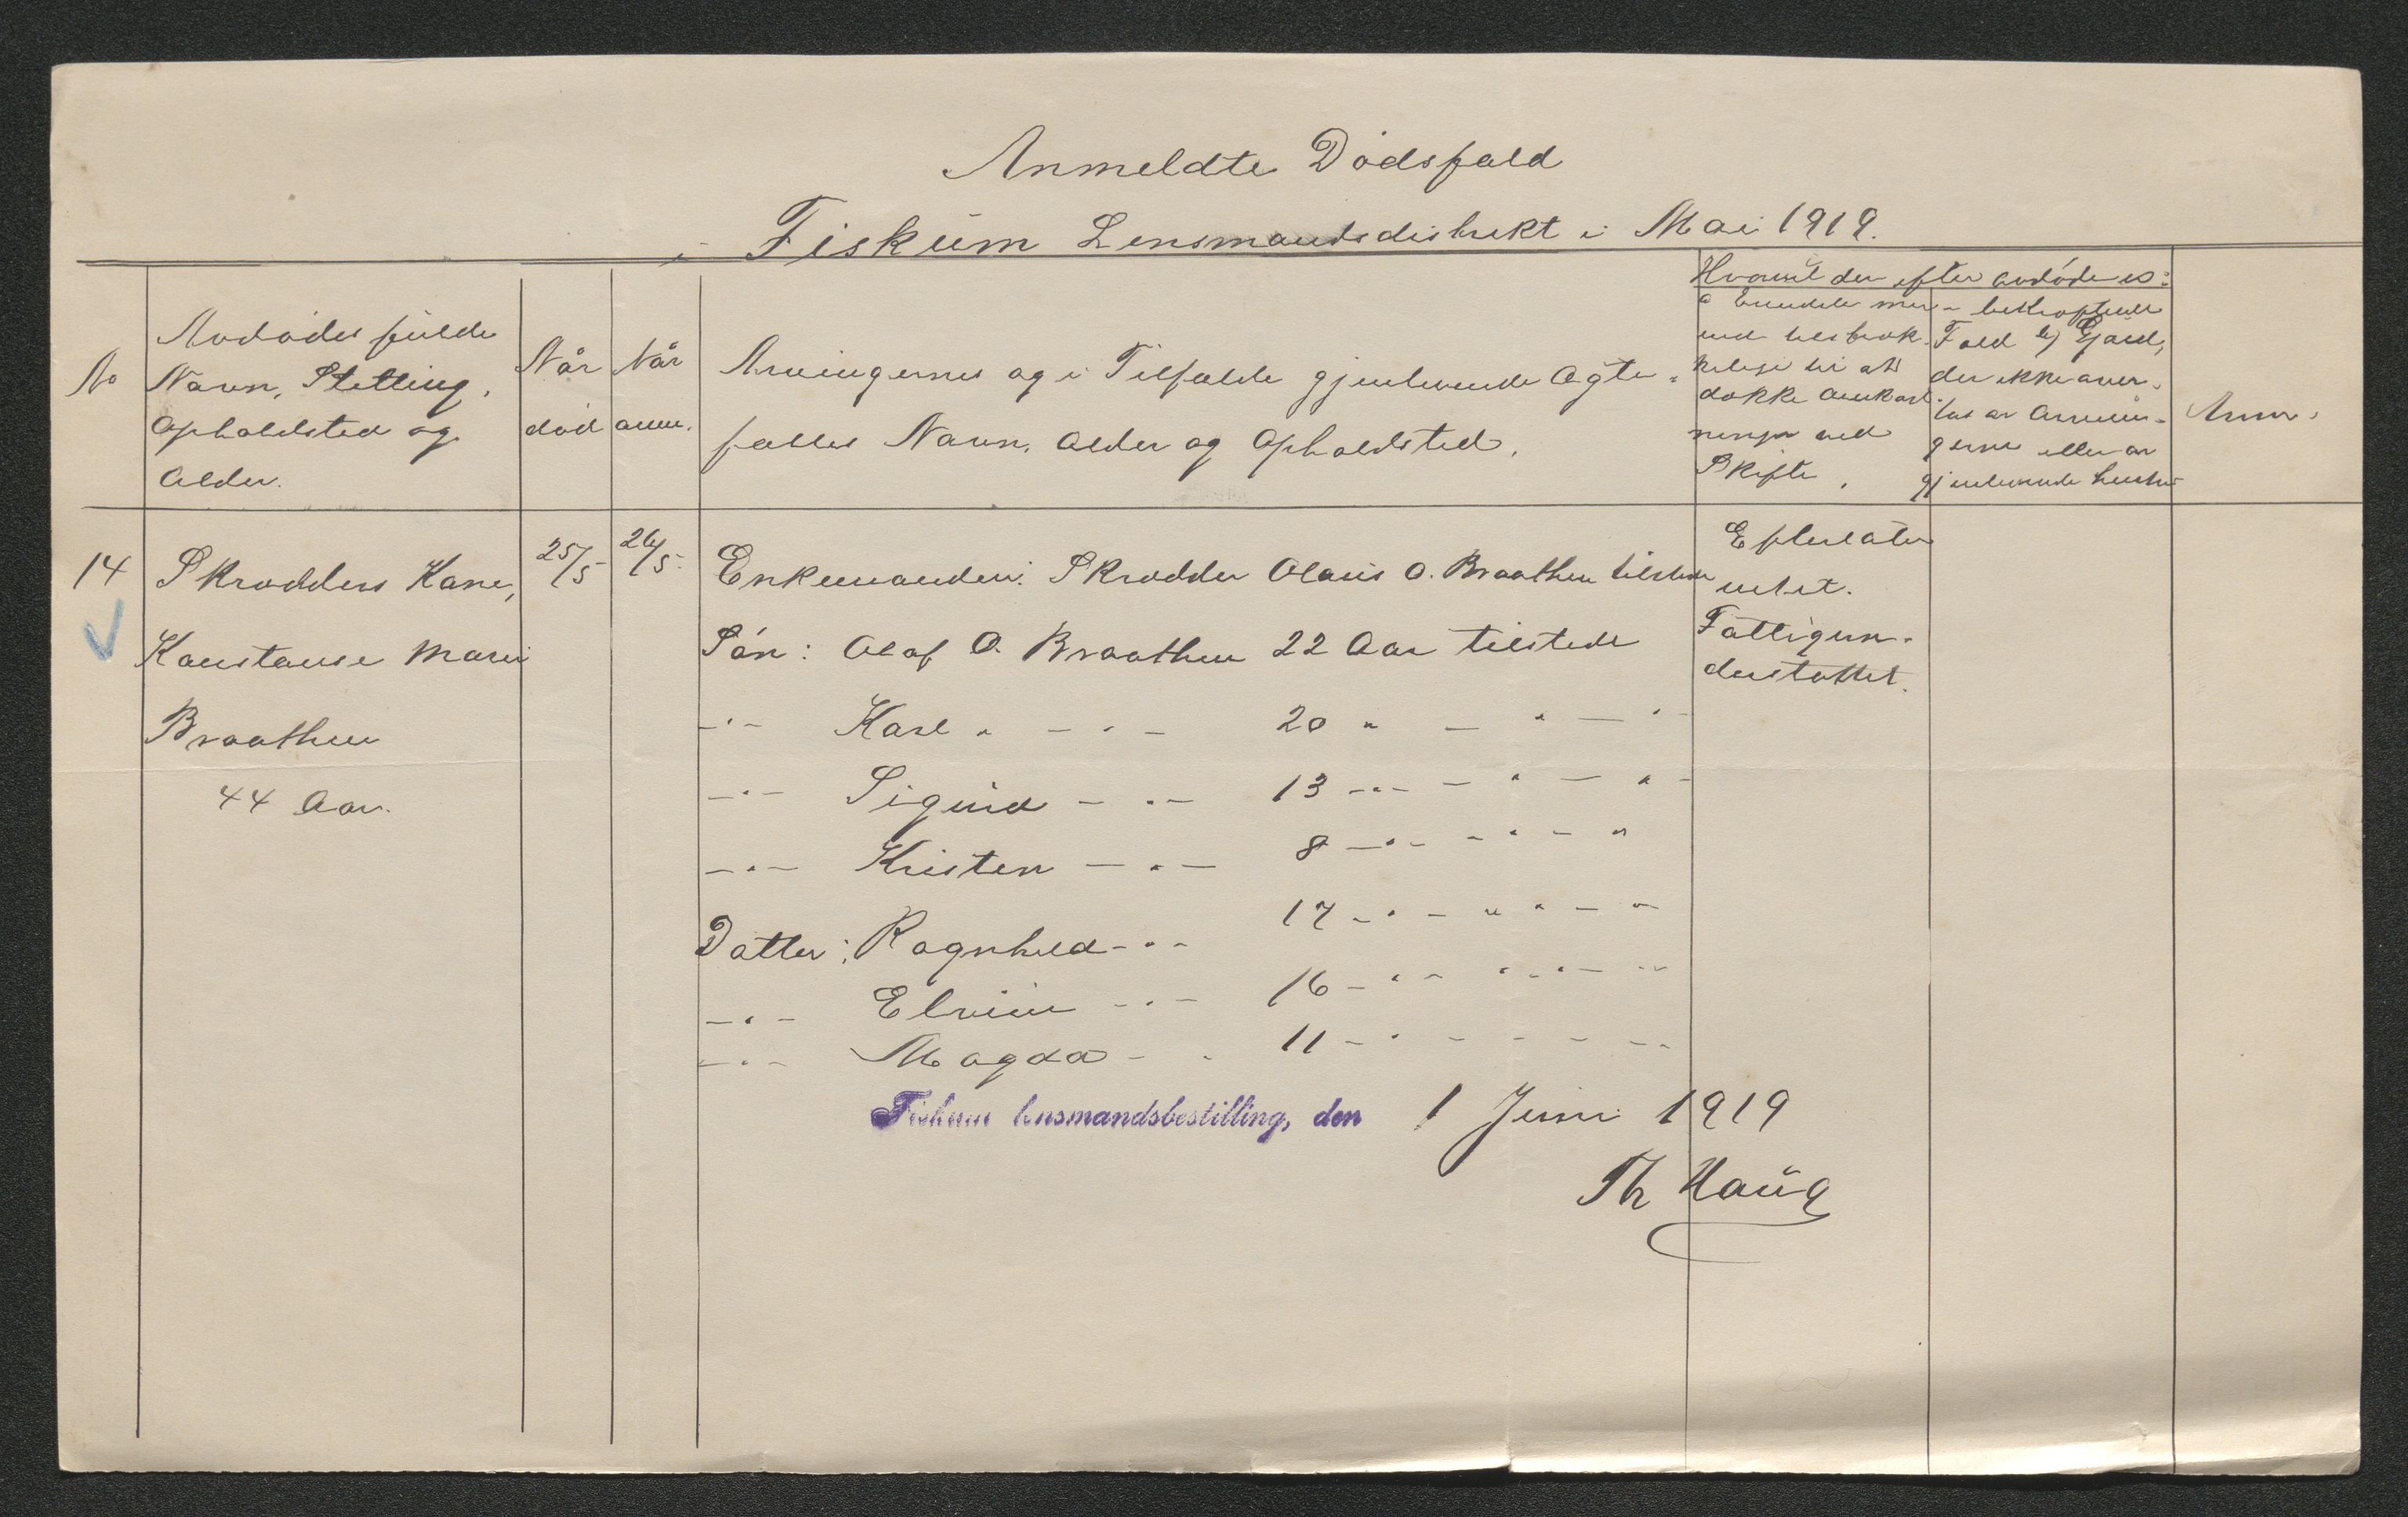 Anmeldte Dødsfald
i Fiskum Lensmandsdistrikt i Mai 1919.
No
Avdødes fulde
Navn, Stilling,
Opholdsted og
Alder.
Når
død
Når
anm.
Arvingernes og i Tilfælde gjenlevende Ægte-
fælles Navn, Alder og Opholdsted.
Hvorvidt der efter avdøde er:
a Eiendele mer
end tilstræk-
kelige til at
dække Omkost-
ninger ved
Skifte,
bekræftende
Fald b) Gjæld,
der ikke over-
tas av Arvin-
gerne eller av
gjenlevende
Anm.
14
Skrædders Kone,
Konstanse Marie
Braathen
44 Aar.
25/5
26/5.
Enkemanden: Skrædder Olaus O. Braathen tilstede
Søn: Olaf O. Braathen 22 Aar tilstede
-"- Karl " - " - 20 " - " - " -
-"- Sigurd - " - 13 -"- - " - " -
-"- Kristen - " - 8 -"- - " - "
Datter: Ragnhild -"- 17 -"- " " - "
-"- Elvine -"- 16 -"- " - " - "
-"- Magda - " 11 - " - - - -
Efterlater
intet.
Fattigun-
derstøttet.
Fiskum lensmandsbestilling, den 1 Juni 1919
Th Haug